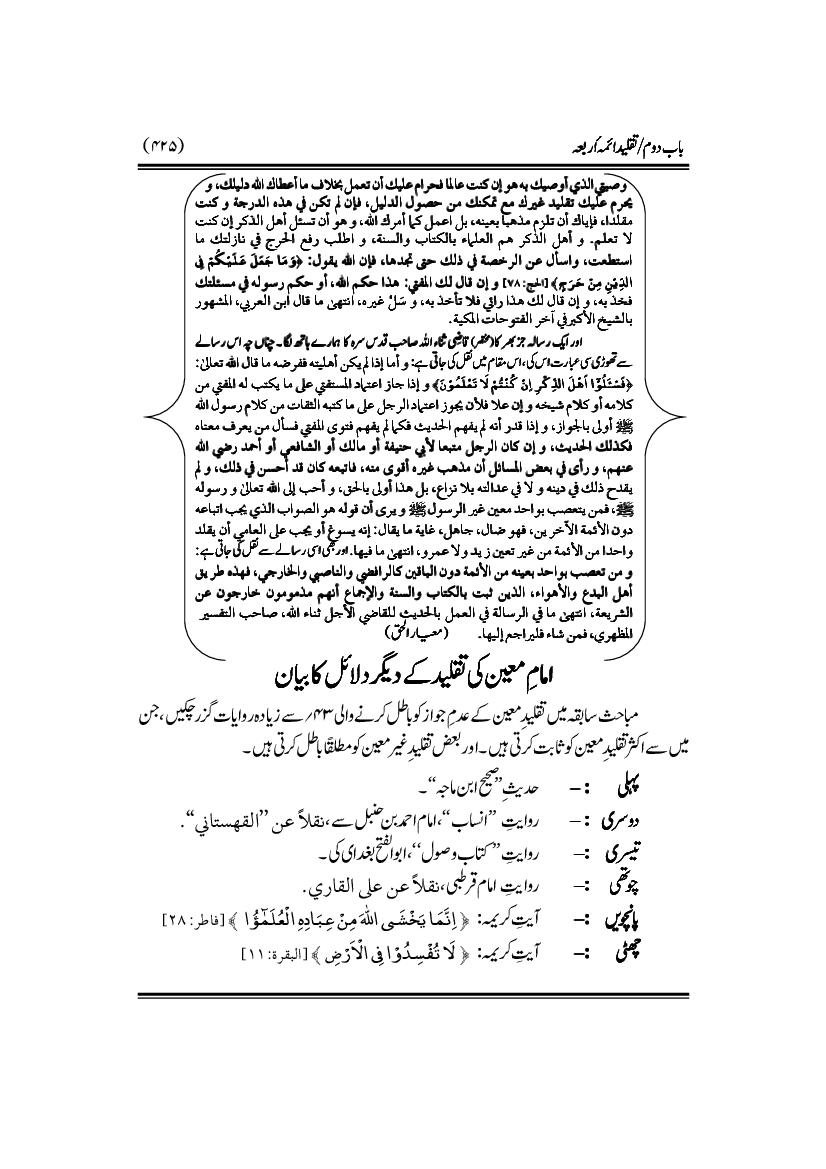 باب دوم/تقلید ائمہ أربعہ
(۴۲۵)
وصیتي الذي أوصیك به هو إن كنت عالما فحرام علیك أن تعمل بخلاف ما أعطاك الله دلیلك، و
یحرم علیك تقلید غیرك مع تمكنك من حصول الدلیل، فإن لم تكن في هذه الدرجة و كنت
مقلدا، فإیاك أن تلزم مذهبا بعینه، بل اعمل كما أمرك الله، و هو أن تسئل أهل الذكر إن كنت
لا تعلم۔ و أهل الذكر هم العلماء بالكتاب والسنة، و اطلب رفع الحرج في نازلتك ما
استطعت، واسأل عن الرخصة في ذلك حتی تجدها، فإن الله یقول: ﴿وَمَا جَعَلَ عَلَیْكُمْ فِی
الدِّیْنِ مِنْ حَرَجٍ﴾ [الحج: ۷۸] و إن قال لك المفتي: هذا حكم الله، أو حكم رسوله في مسئلتك
فخذ به، و إن قال لك هذا رأیي فلا تأخذ به، و سَلْ غیره، انتهیٰ ما قال ابن العربي، المشهور
بالشیخ الأكبر في آخر الفتوحات المكیة.
اور ایک رسالہ جز بھر کا (مختصر) قاضی ثناء اللہ صاحب قدس سرہ کا ہمارے ہاتھ لگا۔ چناں چہ اس رسالے
سے تھوڑی سی عبارت اس کی، اس مقام میں نقل کی جاتی ہے: و أما إذا لم یكن أهلیته ففرضه ما قال الله تعالیٰ:
﴿فَسْـَٔلُوْۤا اَهْلَ الذِّكْرِ اِنْ كُنْتُمْ لَا تَعْلَمُوْنَ﴾ و إذا جاز اعتماد المستفتي علی ما یكتب له المفتي من
كلامه أو كلام شیخه و إن علا فلأن یجوز اعتماد الرجل علی ما كتبه الثقات من كلام رسول الله
ﷺ أولی بالجواز، و إذا قدر أنه لم یفهم الحدیث فكما لم یفهم فتوی المفتي فسأل من یعرف معناه
فكذلك الحدیث، و إن كان الرجل متبعا لأبي حنیفة أو مالك أو الشافعي أو أحمد رضي الله
عنهم، و رأی في بعض المسائل أن مذهب غیره أقوی منه، فاتبعه كان قد أحسن في ذلك، و لم
یقدح ذلك في دینه و لا في عدالته بلا نزاع، بل هذا أولی بالحق، و أحب إلی الله تعالیٰ و رسوله
ﷺ، فمن یتعصب بواحد معین غیر الرسول ﷺ و یری أن قوله هو الصواب الذي یجب اتباعه
دون الأئمة الآخرین، فهو ضال، جاهل، غایة ما یقال: إنه یسوغ أو یجب علی العامي أن یقلد
واحدا من الأئمة من غیر تعین زید ولا عمرو، انتهیٰ ما فیها. اور بھی اسی رسالے سے نقل کی جاتی ہے:
و من تعصب بواحد بعینه من الأئمة دون الباقین كالرافضي والناصبي والخارجي، فهذه طریق
أهل البدع والأهواء، الذین ثبت بالكتاب والسنة والإجماع أنهم مذمومون خارجون عن
الشریعة، انتهیٰ ما في الرسالة في العمل بالحدیث للقاضي الأجل ثناء الله، صاحب التفسیر
المظهري، فمن شاء فلیراجع إلیها۔ (معیار الحق)
امامِ معین کی تقلید کے دیگر دلائل کا بیان
مباحث سابقہ میں تقلیدِ معین کے عدمِ جواز کو باطل کرنے والی ۴۳؍ سے زیادہ روایات گزر چکیں، جن
میں سے اکثر تقلیدِ معین کو ثابت کرتی ہیں۔ اور بعض تقلیدِ غیر معین کو مطلقًا باطل کرتی ہیں۔
پہلی :– حدیثِ ”صحیح ابن ماجہ“۔
دوسری :– روایتِ ”انساب“، امام احمد بن حنبل سے، نقلاً عن ”القهستاني“.
تیسری :– روایتِ ”کتاب وصول“، ابو الفتح بغدادی کی۔
چوتھی :– روایتِ امام قرطبی، نقلاً عن علی القاري.
پانچویں :– آیتِ کریمہ: ﴿ اِنَّمَا یَخْشَی اللّٰهَ مِنْ عِبَادِهِ الْعُلَمٰٓؤُا ﴾ [فاطر: ۲۸]
چھٹی :– آیتِ کریمہ: ﴿ لَا تُفْسِدُوْا فِی الْاَرْضِ ﴾ [البقرة: ۱۱]